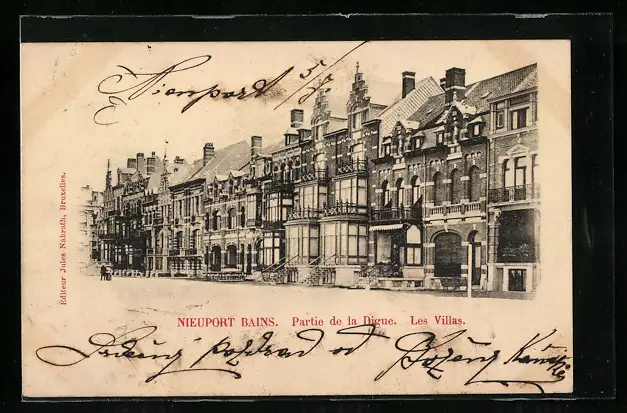 Nieuport 5/7
Editeur Jules Nahrath, Bruxelles.
NIEUPORT BAINS. Partie de la Digue. Les Villas.
Srdečný pozdrav od